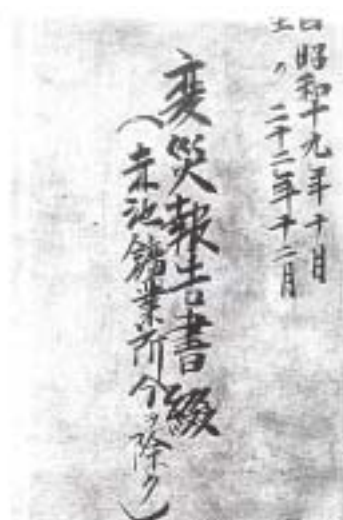 自昭和十九年十月
至〃二十二年十二月
変災報告書綴
（赤池鑛業所分ヲ除ク）